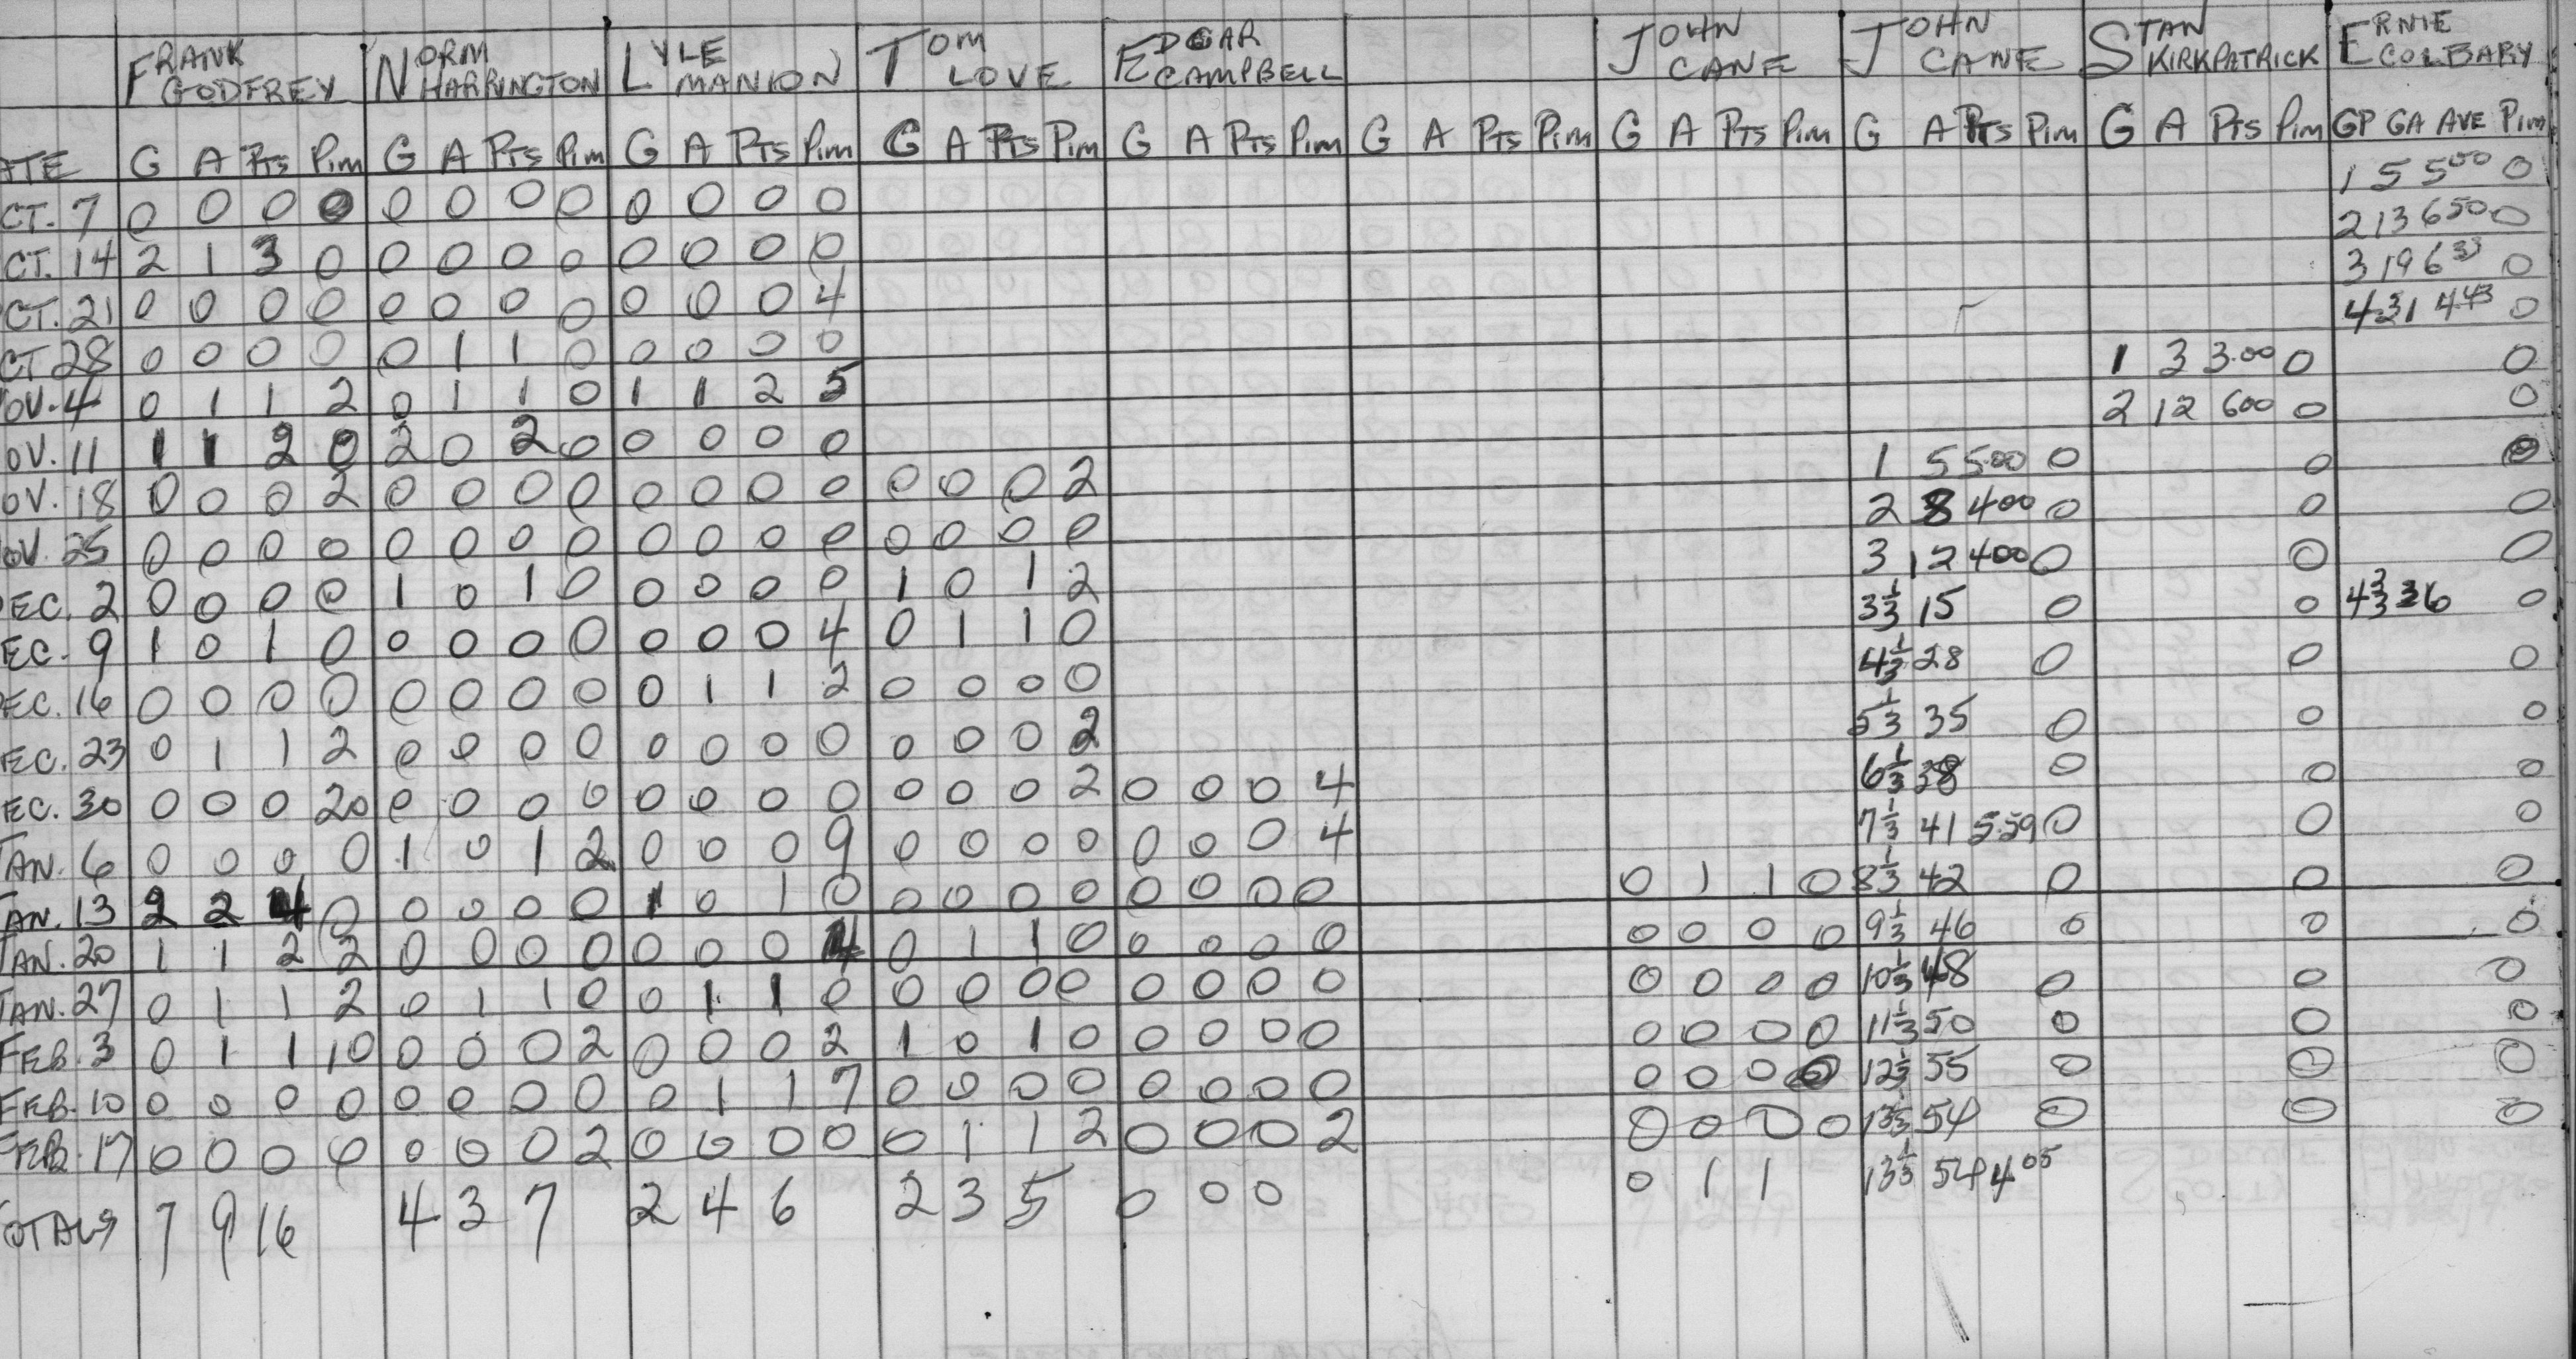 FRANK GODFREY NORM HARRINGTON LYLE MANION TOM LOVE EDGAR CAMPBELL JOHN CANE JOHN CANE STAN KIRKPATRICK ERNIE COLBARY
ATE G A PTS PIM G A PTS PIM G A PTS PIM G A PTS PIM G A PTS PIM G A PTS PIM G A PTS PIM G A PTS PIM G A PTS PIM GP GA AVE PIM
CT. 7 0 0 0 0 0 0 0 0 0 0 0 0 1 5 5 00 0
CT. 14 2 1 3 0 0 0 0 0 0 0 0 0 2 13 6 50 0
CT. 21 0 0 0 0 0 0 0 0 0 0 0 4 3 19 6 33 0
CT 28 0 0 0 0 0 1 1 0 0 0 0 0 4 31 4 43 0
OV. 4 0 1 1 2 0 1 1 0 1 1 2 5 1 3 3.00 0 0
OV. 11 1 1 2 0 2 0 2 0 0 0 0 0 2 12 600 0 0
OV. 18 0 0 0 2 0 0 0 0 0 0 0 0 0 0 0 2 1 5 5.00 0 0 0
OV. 25 0 0 0 0 0 0 0 0 0 0 0 0 0 0 0 0 2 8 400 0 0 0
EC. 2 0 0 0 0 1 0 1 0 0 0 0 0 1 0 1 2 3 12 400 0 0 0
EC. 9 1 0 1 0 0 0 0 0 0 0 0 4 0 1 1 0 3 1/3 15 0 0 4 2/3 36 0
EC. 16 0 0 0 0 0 0 0 0 0 1 1 2 0 0 0 0 4 1/3 28 0 0 0
EC. 23 0 1 1 2 0 0 0 0 0 0 0 0 0 0 0 2 5 1/3 35 0 0 0
EC. 30 0 0 0 20 0 0 0 0 0 0 0 0 0 0 0 2 0 0 0 4 6 1/3 38 0 0 0
AN. 6 0 0 0 0 1 0 1 2 0 0 0 9 0 0 0 0 0 0 0 4 7 1/3 41 5.59 0 0 0
AN. 13 2 2 4 0 0 0 0 0 1 0 1 0 0 0 0 0 0 0 0 0 0 1 1 0 8 1/3 42 0 0 0
AN. 20 1 1 2 2 0 0 0 0 0 0 0 4 0 1 1 0 0 0 0 0 0 0 0 0 9 1/3 46 0 0 0
AN. 27 0 1 1 2 0 1 1 0 0 1 1 0 0 0 0 0 0 0 0 0 0 0 0 0 10 1/3 48 0 0 0
FEB. 3 0 1 1 10 0 0 0 2 0 0 0 2 1 0 1 0 0 0 0 0 0 0 0 0 11 1/3 50 0 0 0
FEB. 10 0 0 0 0 0 0 0 0 0 1 1 7 0 0 0 0 0 0 0 0 0 0 0 0 12 1/3 55 0 0 0
FEB. 17 0 0 0 0 0 0 0 2 0 0 0 0 0 1 1 2 0 0 0 2 0 0 0 0 13 1/3 54 0 0 0
OTALS 7 9 16 4 3 7 2 4 6 2 3 5 0 0 0 0 1 1 13 1/3 54 4 05